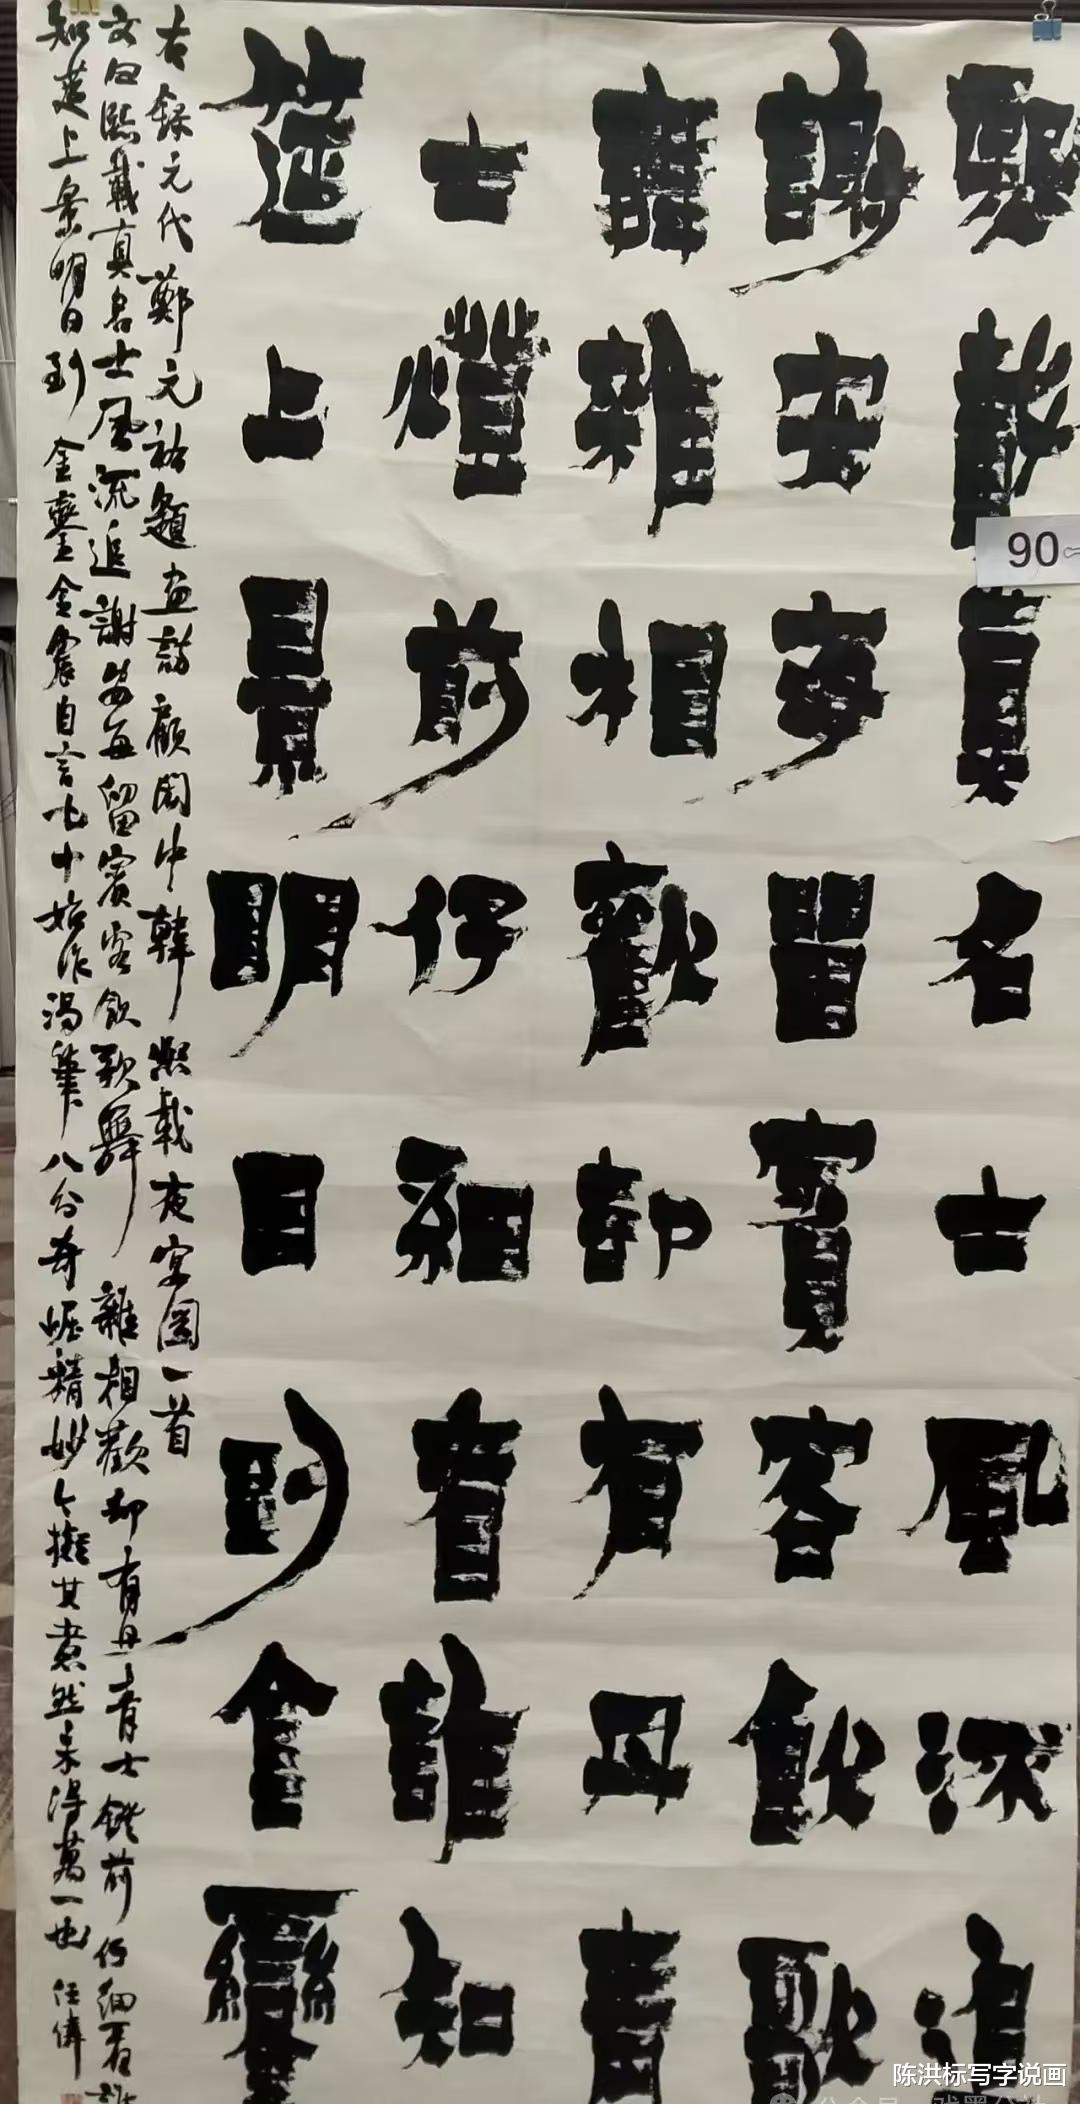 熙載真名士風流追
謝安每留賓客飲歌
舞雜相歡却有丹青
士燈前仔細看誰知
筵上景明日到金鑾
右錄元代鄭元祐題畫詩顧閎中韓熙載夜宴圖一首
文曰熙載真名士風流追謝安每留賓客飲歌舞雜相歡却有丹青士燈前仔細看誰
知筵上景明日到金鑾金農自言七十始作渴筆八分奇崛精妙今擬其意然未得萬一也任偉
90
陈洪标写字说画